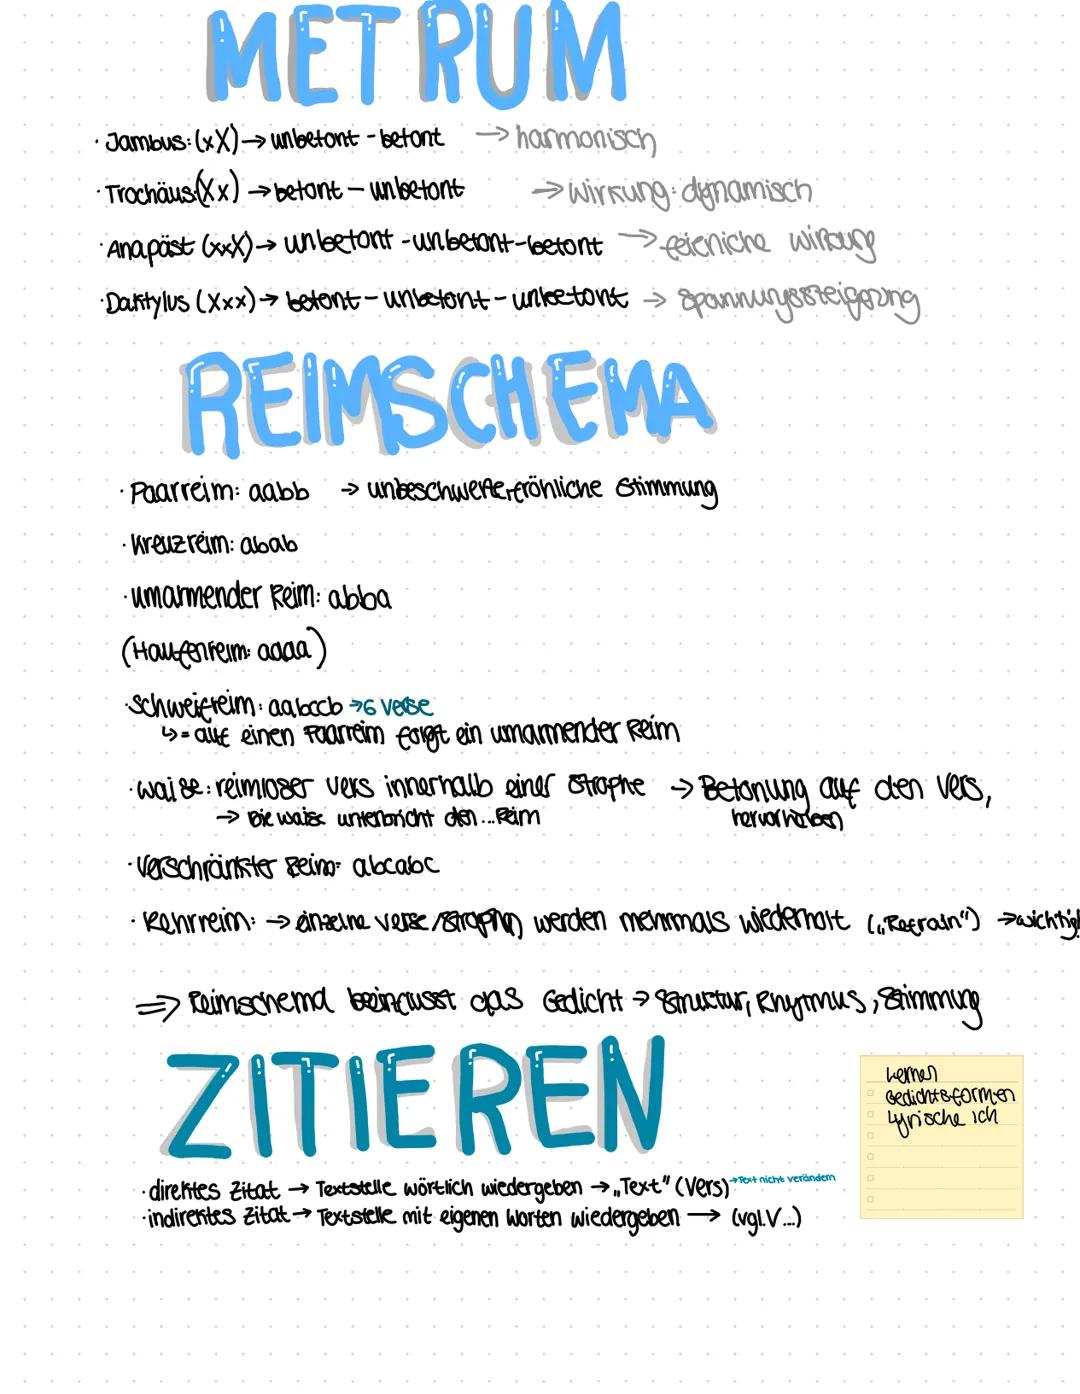 METRUM
· Jambus: (xX) → unbetont - betont → harmonisch
· Trochäus: (Xx) → betont - unbetont → wirkung: dynamisch
· Anapäst (xxX) → unbetont - unbetont - betont → feierliche wirkung
· Daktylus (Xxx) → betont - unbetont - unbetont → Spannungssteigerung
REIMSCHEMA
· Paarreim: aabb → unbeschwerte, fröhliche Stimmung
· Kreuzreim: abab
· umarmender Reim: abba
(Haufenreim: aaaa)
· Schweifreim: aabccb → 6 Verse
↳ = auf einen Paarreim folgt ein umarmender Reim
· Waise: reimloser Vers innerhalb einer Strophe → Betonung auf den Vers,
→ Die Waise unterbricht den ... Reim hervorheben
· Verschränkter Reim: abcabc
· Kehrreim: → einzelne Verse/Strophen werden mehrmals wiederholt („Refrain") → wichtig!
⇒ Reimschema beeinflusst das Gedicht → Struktur, Rhytmus, Stimmung
ZITIEREN
· direktes Zitat → Textstelle wörtlich wiedergeben → „Text" (Vers) → Text nicht verändern
· indirektes Zitat → Textstelle mit eigenen Worten wiedergeben → (vgl. V...)
Lernen
Gedichtsformen
Lyrische ich